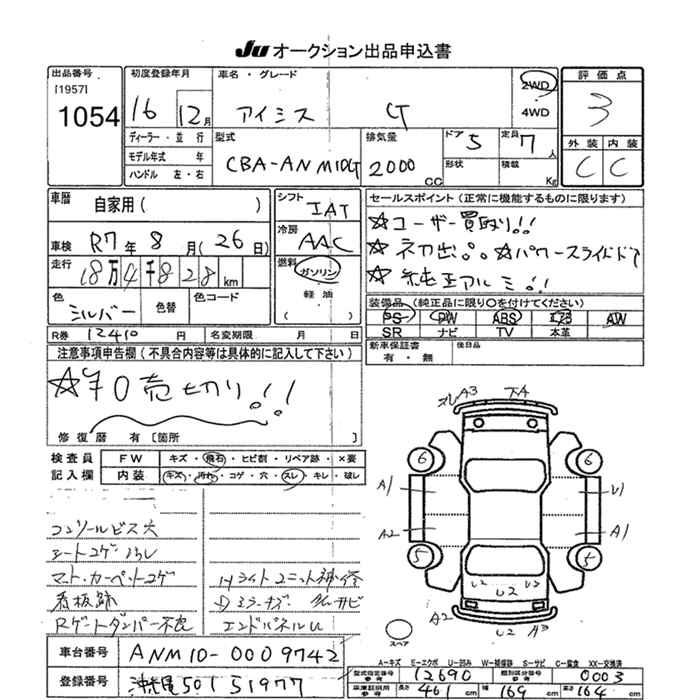 JU オークション出品申込書
出品番号
[1957]
1054
初度登録年月
16 12月
車名・グレード
アイシス G
2WD
4WD
評価点
3
ディーラー・並行
モデル年式 年
ハンドル 左・右
型式
CBA-ANM10G
排気量
2000 CC
ドア 5
形状
定員 7人
積載 Kg
外装 内装
C C
車歴
自家用( )
車検 R7年8月(26日)
走行 18万4千828km
色 シルバー
色替
色コード
シフト
IAT
冷房
AAC
燃料
ガソリン
軽油
( )
セールスポイント(正常に機能するものに限ります)
☆ユーザー買取り!!
☆初出。。☆パワースライドドア
☆純正アルミ!!
装備品(純正品に限り○を付けてください)
PS PW ABS エアB AW
SR ナビ TV 本革
R券 12410円
名変期限 月 日
新車保証書
有・無
後日品
注意事項申告欄(不具合内容等は具体的に記入して下さい)
☆¥0売切り!!
修復歴 有 [箇所 ]
検査員
記入欄
FW キズ・飛石・ヒビ割・リペア跡・×要
内装 キズ・汚れ・コゲ・穴・スレ・キレ・破レ
コンソールビス穴
シートコゲ・汚レ
マット・カーペットコゲ
看板跡
Rゲートダンパー不良
エンドパネルU
スレ A3 下A
6 6
A1 U1
A2 A1
5 5
U2 U2 U2
A2 U2
スペア
車台番号 ANM10-0009742
登録番号 501 5 1977
A-キズ E-エクボ U-凹み W-補修跡 S-サビ C-腐食 XX-交換済
型式指定番号
参考
12690
類別区分番号
参考
0003
車庫証明用
参考
長さ 461cm 幅 169cm 高さ 164cm